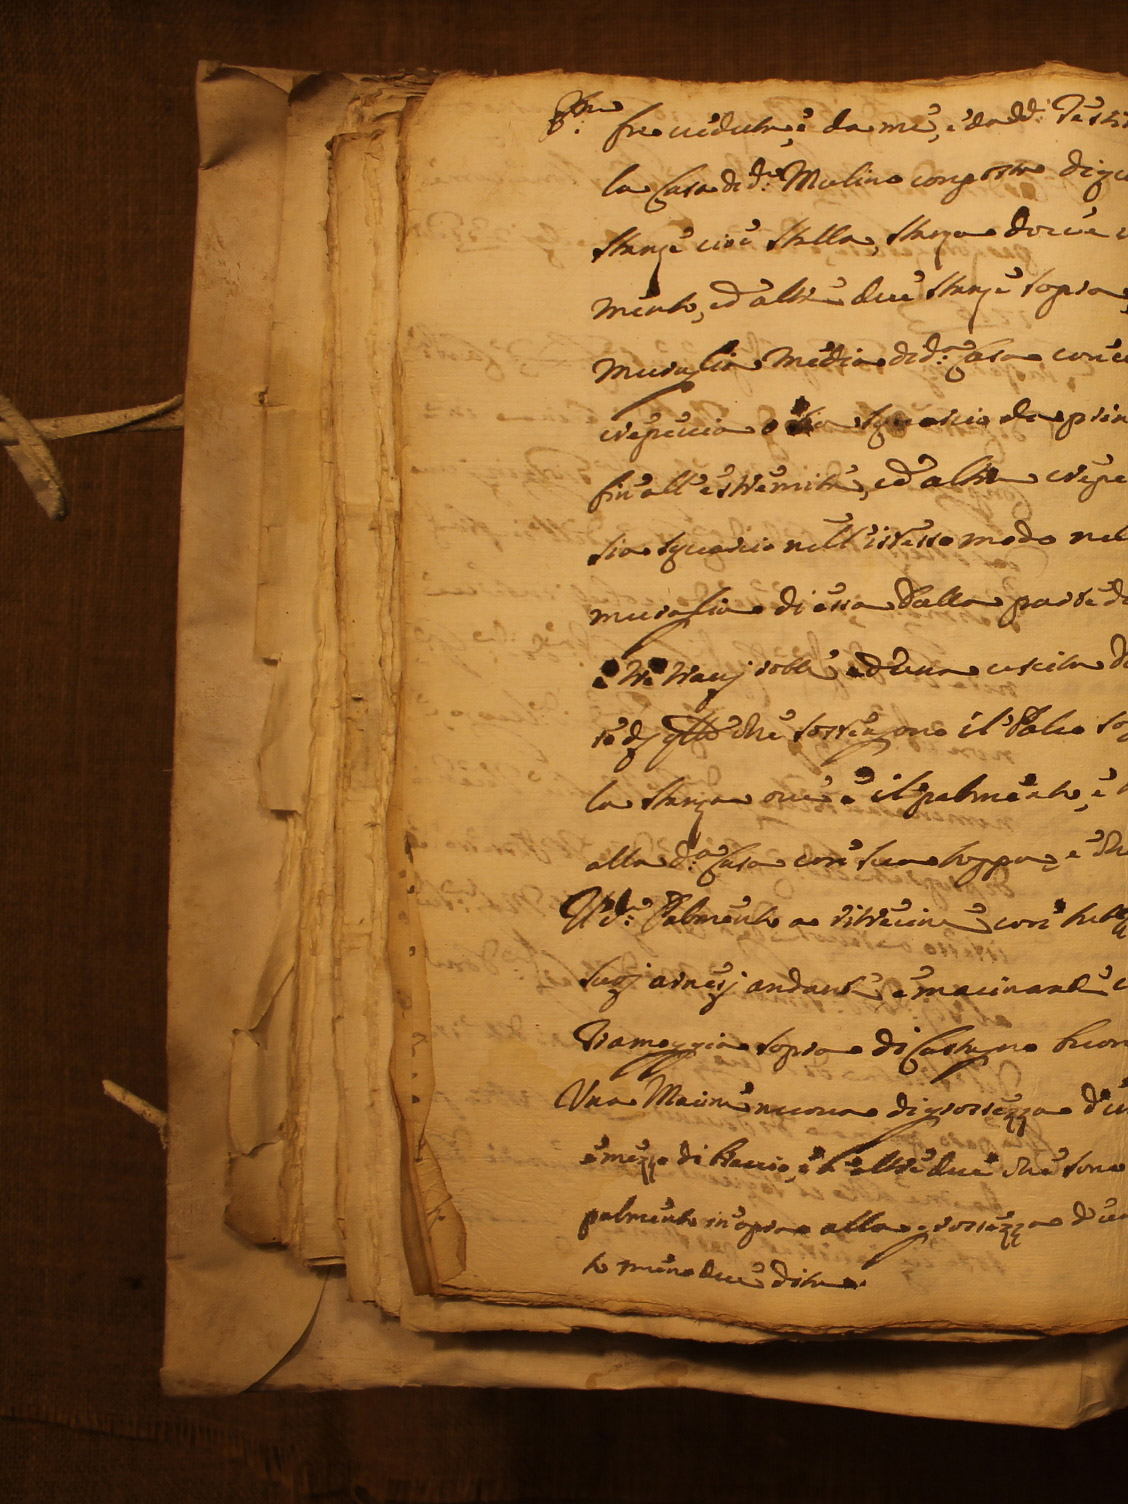 fù veduta, e da me, e da dd: Testi
la Casa di d:o Mulino composta di qu
stanze cioè stalla, stanza dove
mento, ed altre due stanze sopra,
muraglia media di d:a Casa con
crepaccia o sia squarcio da prin
fin all'estremità, ed altra crepa
sia squarcio nell'istesso modo nel
muraglia di essa dalla parte d
e tre travi ed una
che sostengono il Palco so
la stanza ove è il palmento, e
alla d:a Casa con sua toppa, e
Il d:o Palmento a ritrecine con tutti
suoi arnesi andante e macinante
Tramoggia sopra di Castagno buon
Una Macine nuova di grossezza d'u
e mezzo di Braccio, e l'altre due che sono
palmento in opra alla grossezza d'un
to meno due dita.